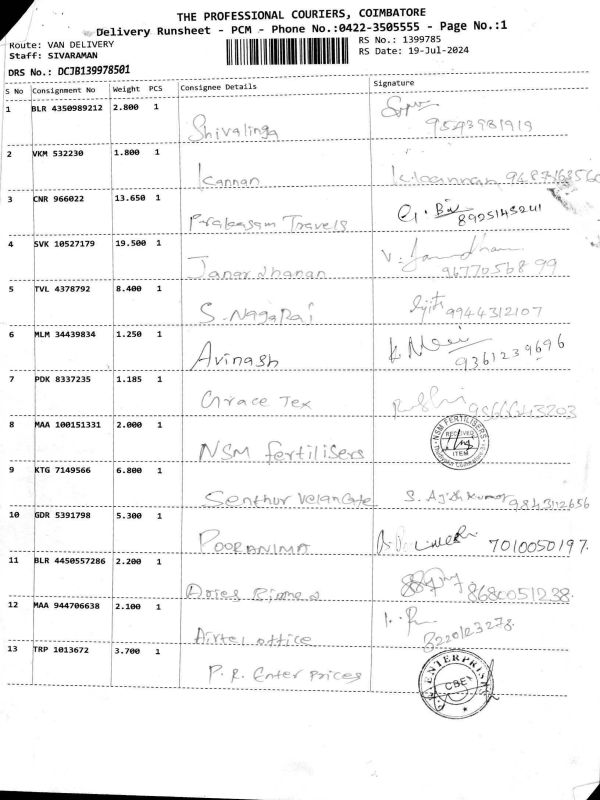 THE PROFESSIONAL COURIERS, COIMBATORE
Delivery Runsheet - PCM - Phone No.:0422-3505555 - Page No.:1
Route: VAN DELIVERY RS No.: 1399785
Staff: SIVARAMAN RS Date: 19-Jul-2024
DRS No.: DCJB139978501
S No Consignment No Weight PCS Consignee Details Signature
1 BLR 4350989212 2.800 1 Shivalinga 9543981919
2 VKM 532230 1.800 1 Kannan
3 CNR 966022 13.650 1 Prakasam Travels 8925145241
4 SVK 10527179 19.500 1 Janardhanan 9677056899
5 TVL 4378792 8.400 1 S. Nagaraj 9944312107
6 MLM 34439834 1.250 1 Avinash 9361239696
7 PDK 8337235 1.185 1 Grace Tex
8 MAA 100151331 2.000 1 NSM fertilisers NSM FERTILISERS RECEIVED ITEM
9 KTG 7149566 6.800 1 Senthur Velan Cate S. Ajish Kumar 9843112656
10 GDR 5391798 5.300 1 POORANIMA 7010050197.
11 BLR 4450557286 2.200 1 Aries 8680051238.
12 MAA 944706638 2.100 1 Airtel office 8220123278.
13 TRP 1013672 3.700 1 P. R. Enter prices ENTERPRIS CBE